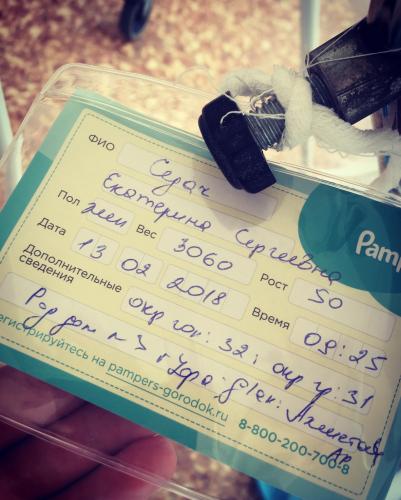 ФИО Седач
Екатерина Сергеевна
Пол жен Вес 3060 Рост 50
Дата 13 02 2018 Время 09:25
Дополнительные сведения окр гол: 32; окр гр: 31
Роддом №3 г Уфа
егистрируйтесь на pampers-gorodok.ru 8-800-200-700-8
Pam